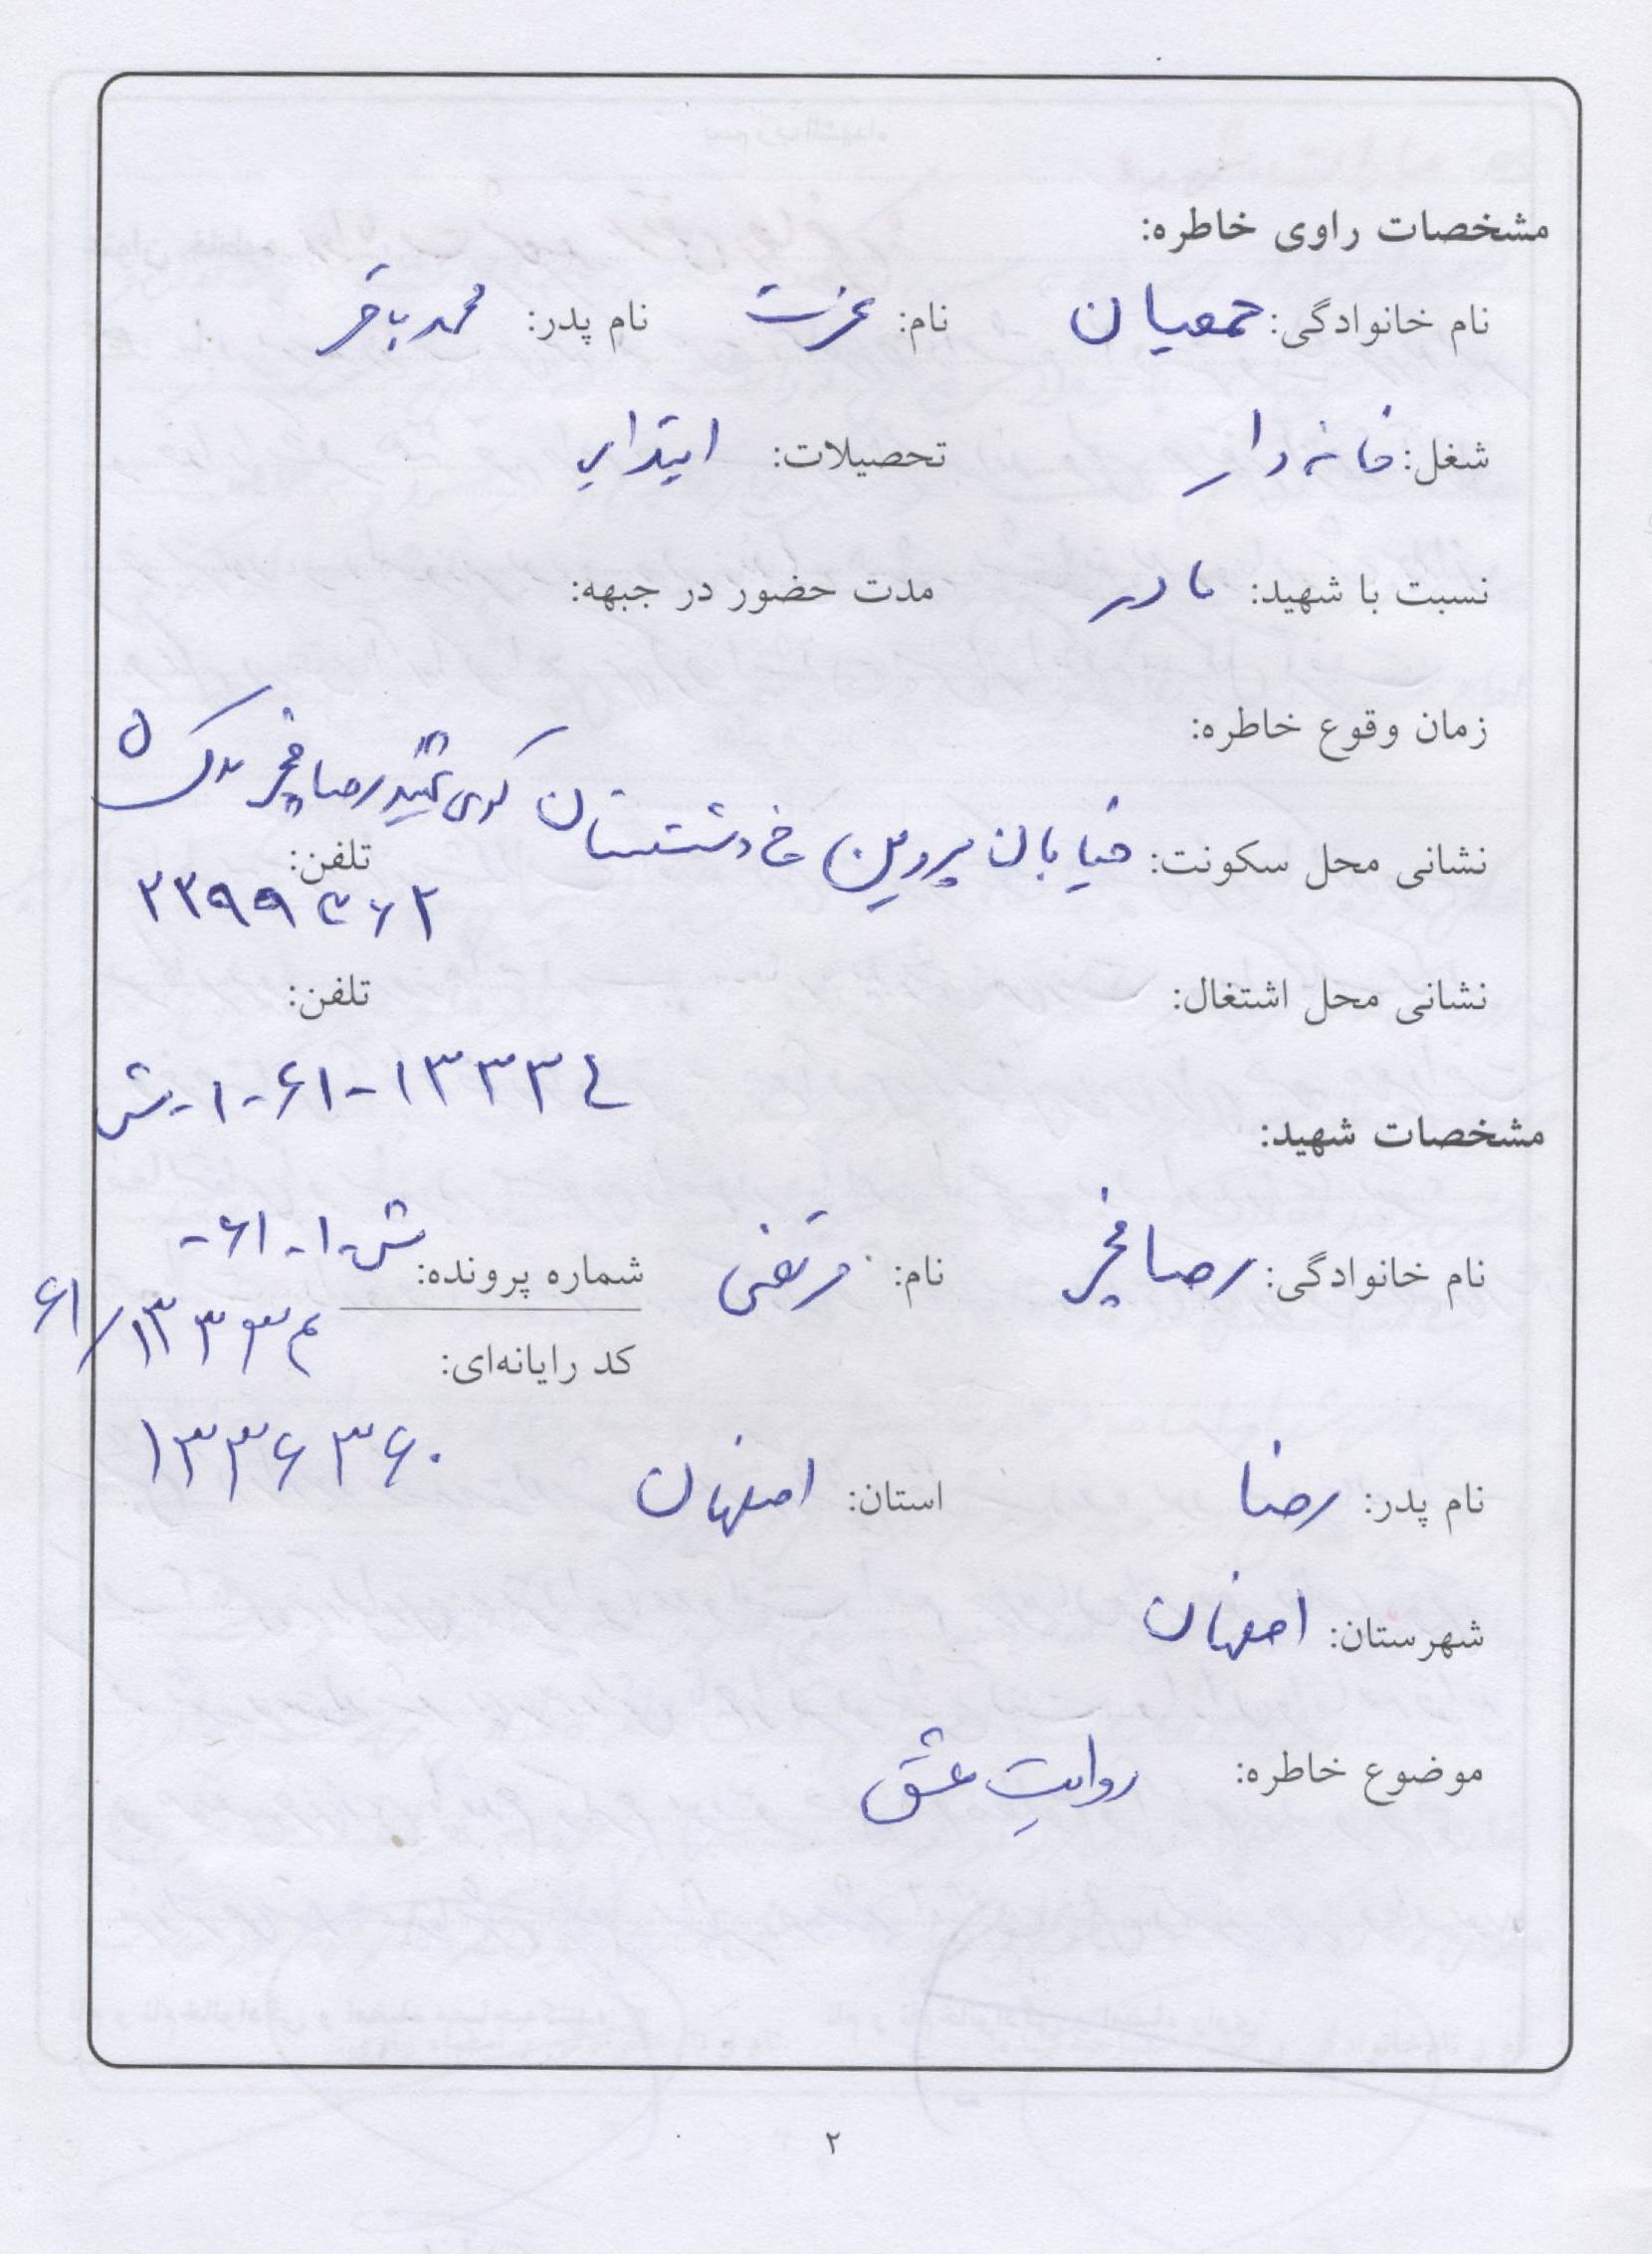 مشخصات راوی خاطره:
نام خانوادگی: جمعیان نام: عزت نام پدر: محمد باقر
شغل: خانه دار تحصیلات: ابتدایی
نسبت با شهید: مادر مدت حضور در جبهه:
زمان وقوع خاطره:
نشانی محل سکونت: خیابان پروین خ دشتستان کوی شهید رضا فخر پلاک ۵
تلفن:
۲۲۹۹۳۶۲
نشانی محل اشتغال: تلفن:
ش-۱-۶۱-۱۳۳۳۴
مشخصات شهید:
نام خانوادگی: رضا فخر نام: مرتضی شماره پرونده: ش-۱-۶۱-
۱۳۳۳۴/۶۱
کد رایانه‌ای:
۱۳۳۶۳۶۰
نام پدر: رضا استان: اصفهان
شهرستان: اصفهان
موضوع خاطره: روایت عشق
۲